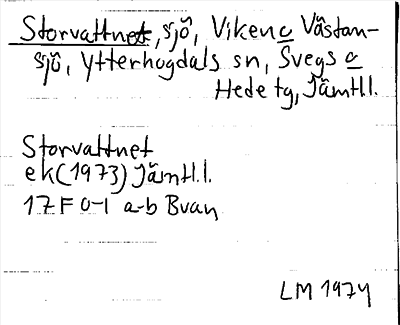 Storvattnet, sjö, Viken o Västan-
sjö, Ytterhogdals sn, Svegs o
Hede tg, Jämtl.l.
Storvattnet
ek (1973) Jämtl.l.
17 F 0-1 a-b Bvan
LM 1974